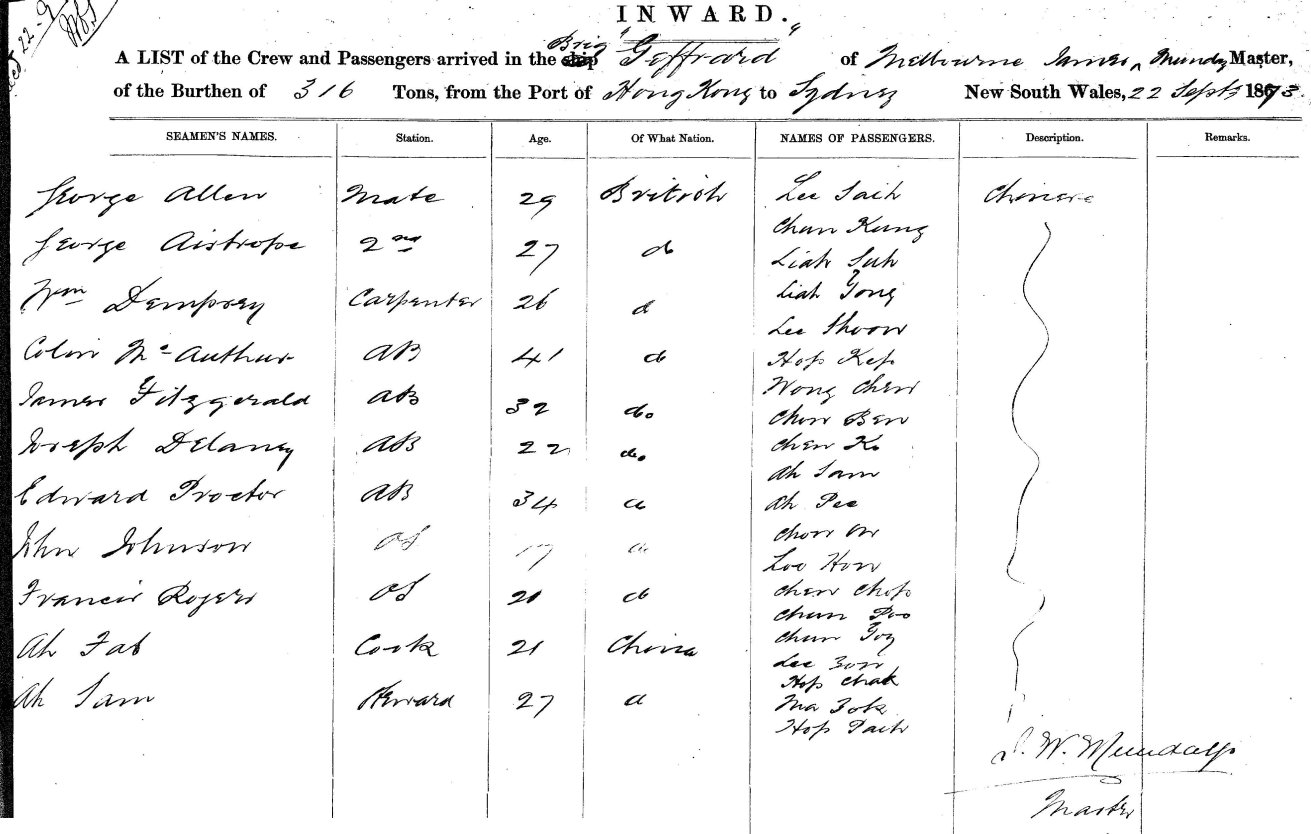 INWARD.
A LIST of the Crew and Passengers arrived in the ship Brig "Geffrard" of Melbourne James Munday Master,
of the Burthen of 316 Tons, from the Port of Hong Kong to Sydney New South Wales, 22 Septr 1873
SEAMEN'S NAMES. Station. Age. Of What Nation. NAMES OF PASSENGERS. Description. Remarks.
George Allen Mate 29 British
George Aistrope 2nd 27 do
Wm Dempsey Carpenter 26 do
Colin McAuthur AB 41 do
James Fitzgerald AB 32 do.
Joseph Delaney AB 22 do.
Edward Proctor AB 34 do
John Johnson OS 17 do
Francis Rogers OS 21 do
Ah Fat Cook 21 China
Ah Sam Steward 27 do
Lee Saih Chinese
Chun Kung
Liah Suh
Liah Yong
Lee Shoon
Hop Kep
Wong Chew
Chon Ben
Chen Ko
Ah Sam
Ah Pee
Chon On
Loo Hon
Chen Chop
Chun Poo
Chun Foy
Lee Zon
Hop Chak
Ma Zok
Hop Paih
Master